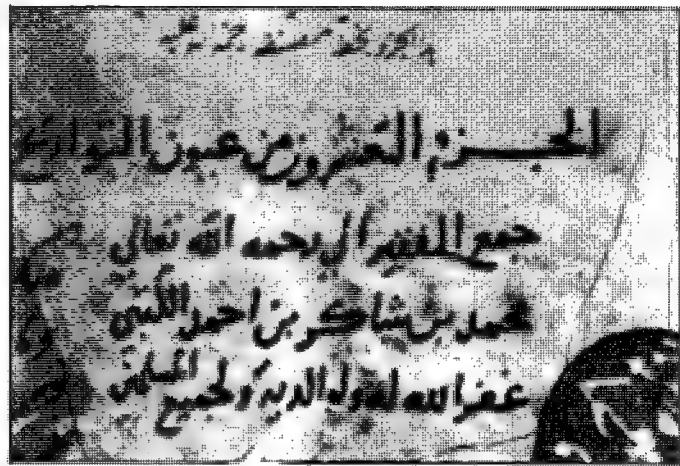 الجزء العشرون من عيون التواريخ
جمع الفقير الي رحمه الله تعالى
محمد بن شاكر بن احمد الكتبي
غفر الله له ولوالديه ولجميع المسلمين